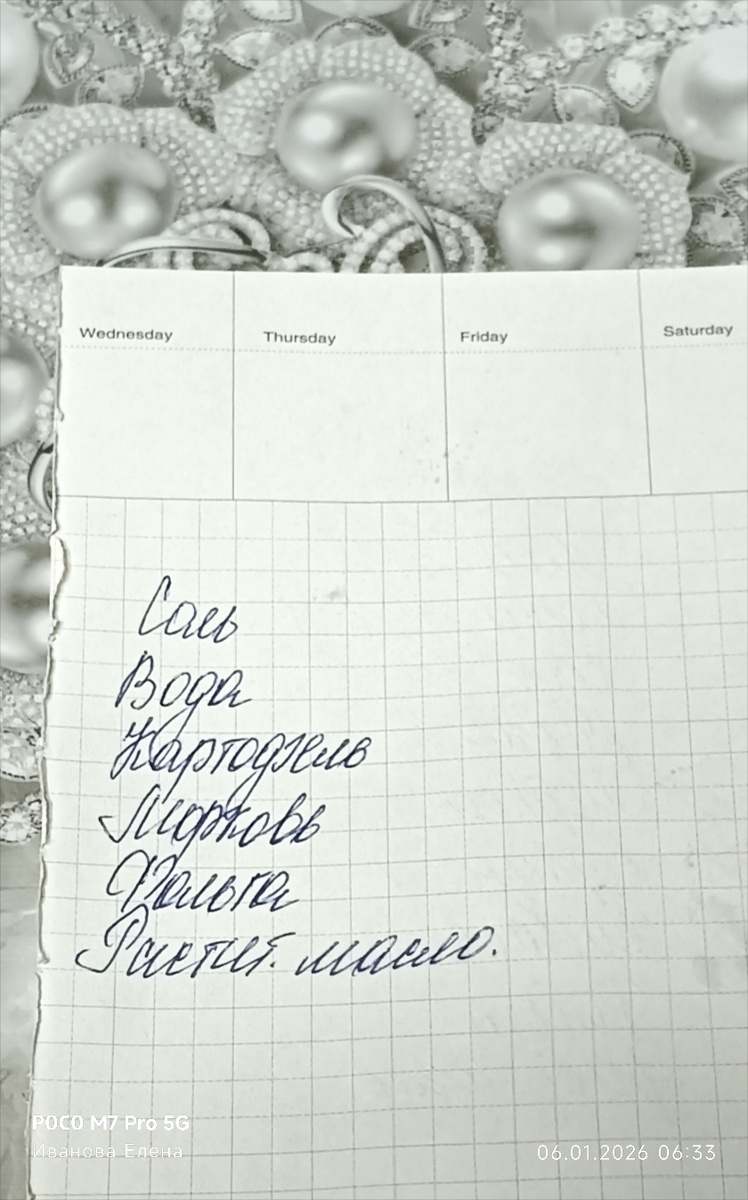 Wednesday Thursday Friday Saturday
Соль
Вода
Картофель
Морковь
Фольга
Растит. масло.
POCO M7 Pro 5G
Иванова Елена 06.01.2026 06:33